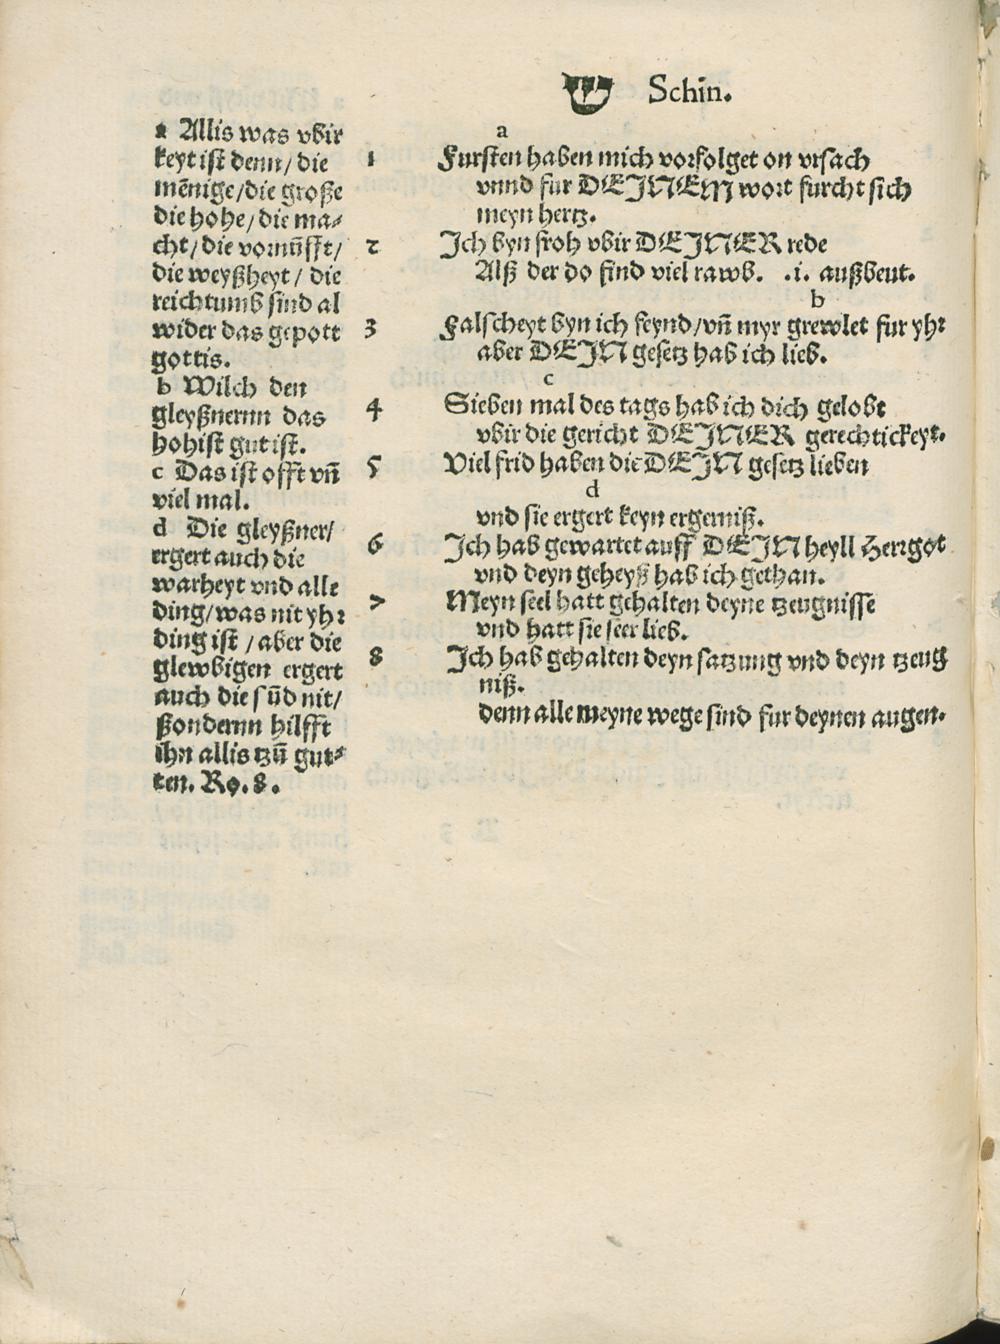 ש Schin.
a Allis was vbir
keyt ist denn/ die
mēnige/die große
die hohe/ die ma⸗
cht/ die vornūfft/
die weyßheyt/ die
reichtumb sind al
wider das gepott
gottis.
b Wilch den
gleyßnernn das
hohist gut ist.
c Das ist offt vn̄
viel mal.
d Die gleyßner/
ergert auch die
warheyt vnd alle
ding/was nit yhr
ding ist /aber die
glewbigen ergert
auch die sūd nit/
ßondernn hilfft
ihn allis tzū gut⸗
ten. Ro. 8.
a
1 Fursten haben mich vorfolget on vrsach
vnnd fur DEJNEM wort furcht sich
meyn hertz.
2 Jch byn froh vbir DEJNER rede
Alß der do find viel rawb. .i. außbeut.
b
3 Falscheyt byn ich feynd/vn̄ myr grewlet fur yhr
aber DEJN gesetz hab ich lieb.
c
4 Sieben mal des tags hab ich dich gelobt
vbir die gericht DEJNER gerechtickeyt.
5 Viel frid haben die DEJN gesetz lieben
d
vnd sie ergert keyn ergerniß.
6 Jch hab gewartet auff DEJN heyll Herrgot
vnd deyn geheyß hab ich gethan.
7 Meyn seel hatt gehalten deyne tzeugnisse
vnd hatt sie seer lieb.
8 Jch hab gehalten deyn satzung vnd deyn tzeug
niß.
denn alle meyne wege sind fur deynen augen.